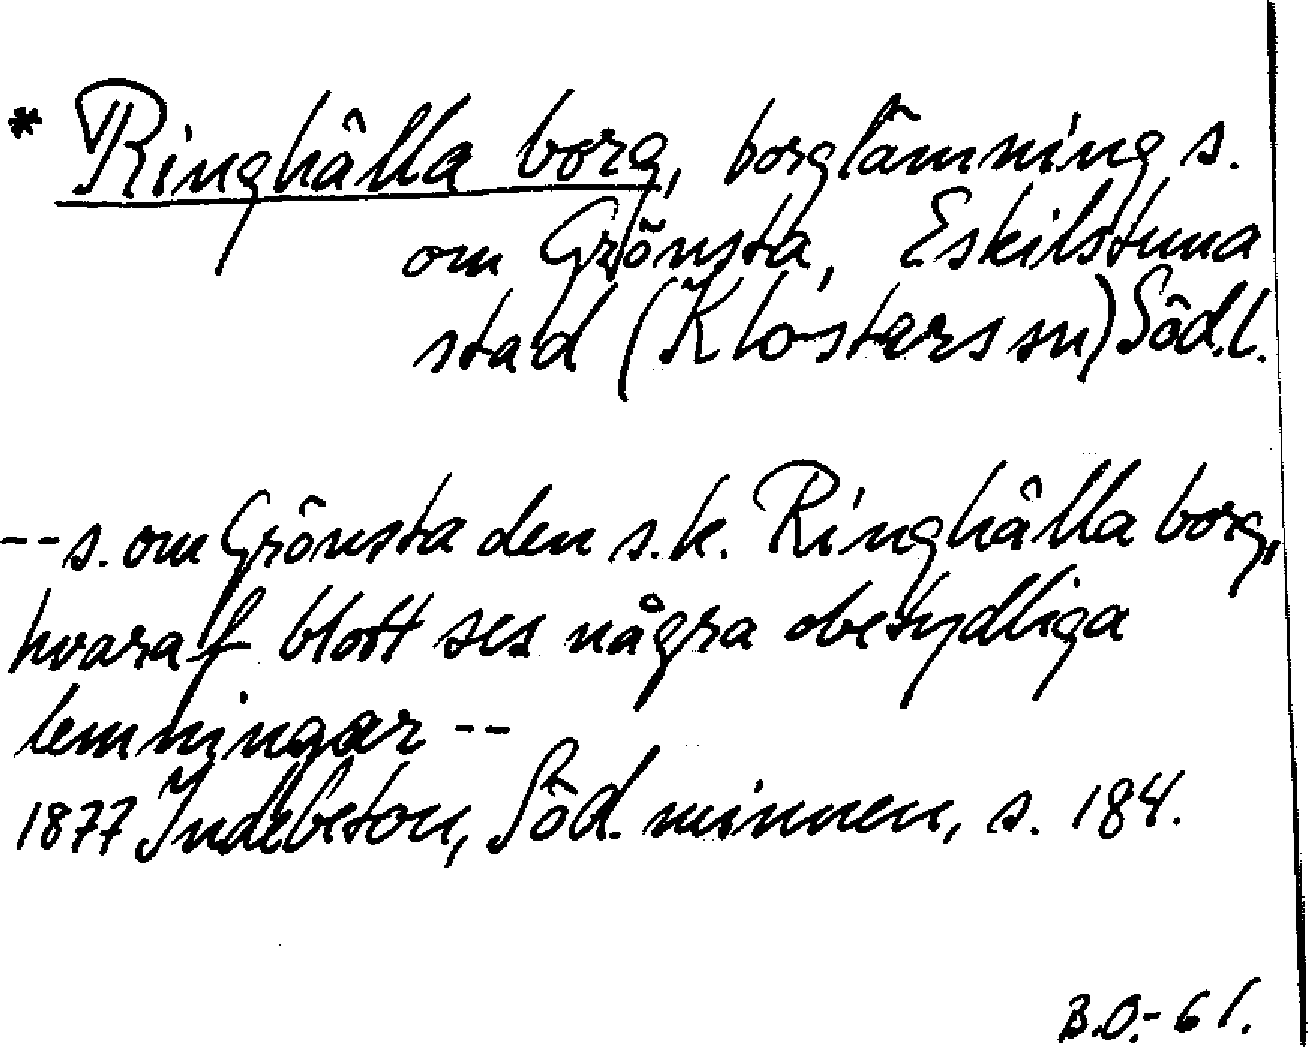 * Ringhälla borg, borglämning s.
om Grönsta, Eskilstuna
stad (Klosters sn) Södl.
-- s. om Grönsta den s.k. Ringhälla borg,
hvaraf blott ses några obetydliga
lemningar --
1877 Indebetou, Söd. minnen, s. 184.
B.O.-61.